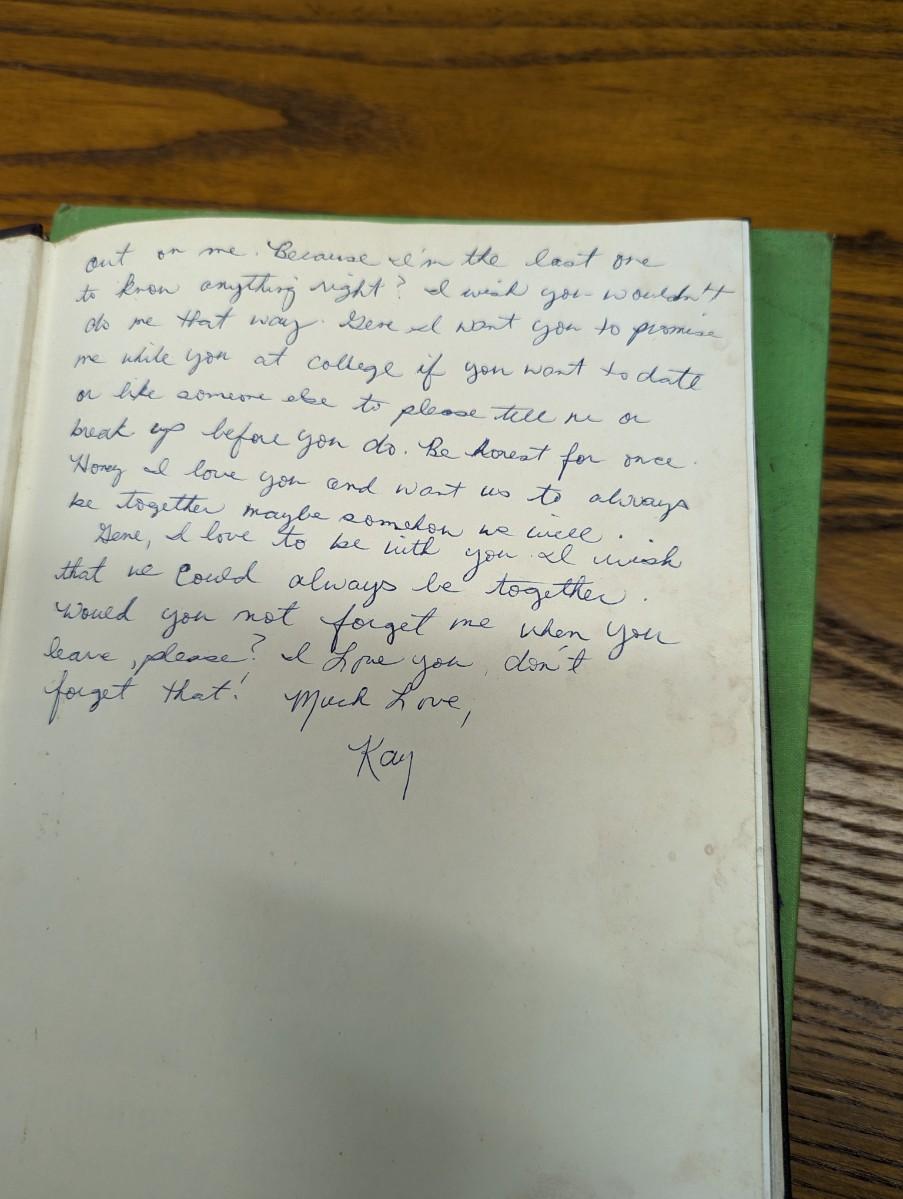 out on me. Because I'm the last one
to know anything right? I wish you wouldn't
do me that way. Gene I want you to promise
me while you at college if you want to date
or like someone else to please tell me or
break up before you do. Be honest for once.
Honey I love you and want us to always
be together maybe somehow we will.
Gene, I love to be with you. I wish
that we could always be together.
Would you not forget me when you
leave, please? I Love you, don't
forget that! Much Love,
Kay